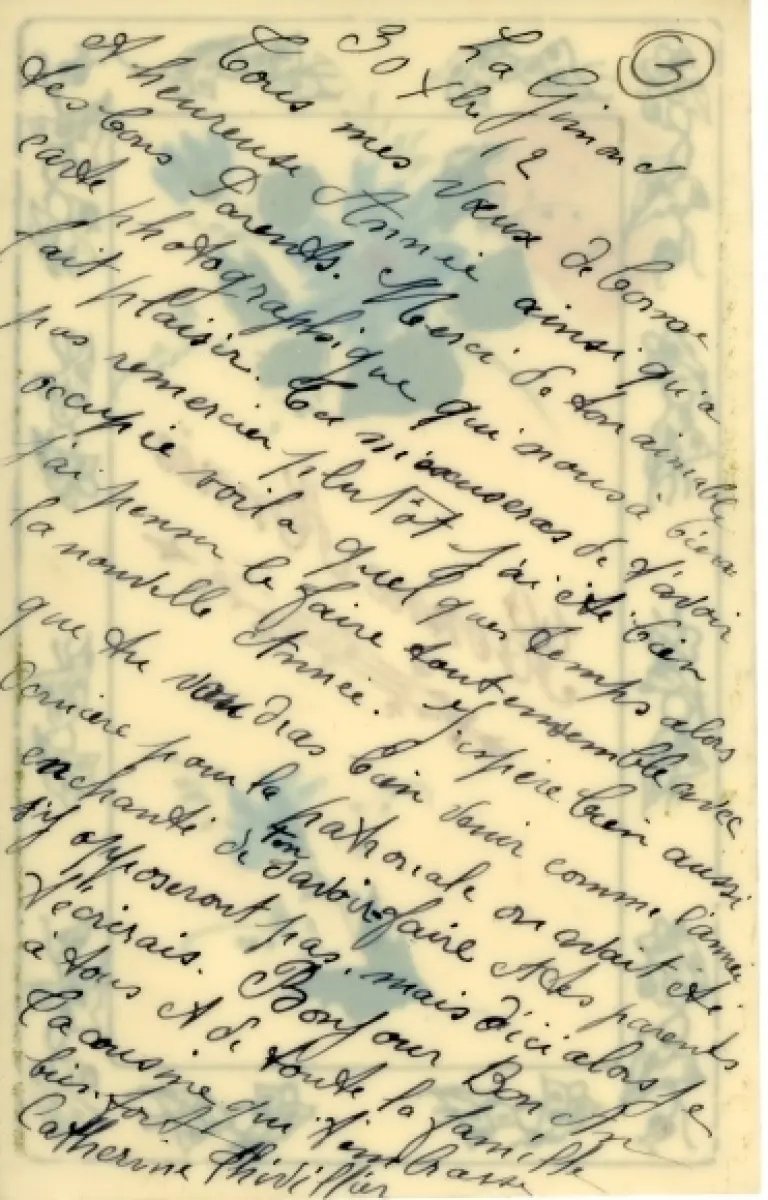 La Gimond
30 Xbre 12
Tous mes Vœux de bonne
et heureuse Année ainsi qu'à
tes bons Parents. Merci de ton aimable
carte photographique qui nous à bien
fait plaisir. Tu m'excuseras de t'avoir
pas remercier plutôt j'ai été bien
occupée voila quelques temps alors
j'ai penser le faire tout ensemble avec
la nouvelle Année. J'espère bien aussi
que tu voudras bien venir comme l'année
dernière pour la patronale on avait été
enchanté de ton savoir faire tes parents
s'y opposeront pas, mais d'ici alors je
t'écrirais. Bonjour Bon An
à tous et de toute la famille
Ta cousine qui t'embrasse
bien fort
Catherine